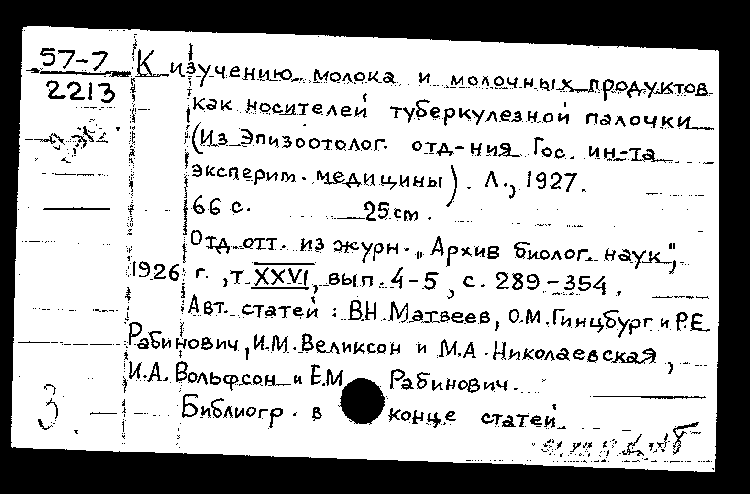 57-7 К изучению молока и молочных продуктов
2213 как носителей туберкулезной палочки
2 экз. (Из Эпизоотолог. отд-ния Гос. ин-та
эксперим. медицины). Л., 1927.
66 с. 25 cm.
Отд. отт. из журн. „Архив биолог. наук",
1926 г., т. XXVI, вып. 4-5, с. 289-354.
Авт. статей: В.Н. Матвеев, О.М. Гинцбург и Р.Е.
Рабинович, И.М. Великсон и М.А. Николаевская,
И.А. Вольфсон и Е.М. Рабинович.
Библиогр. в конце статей
3.